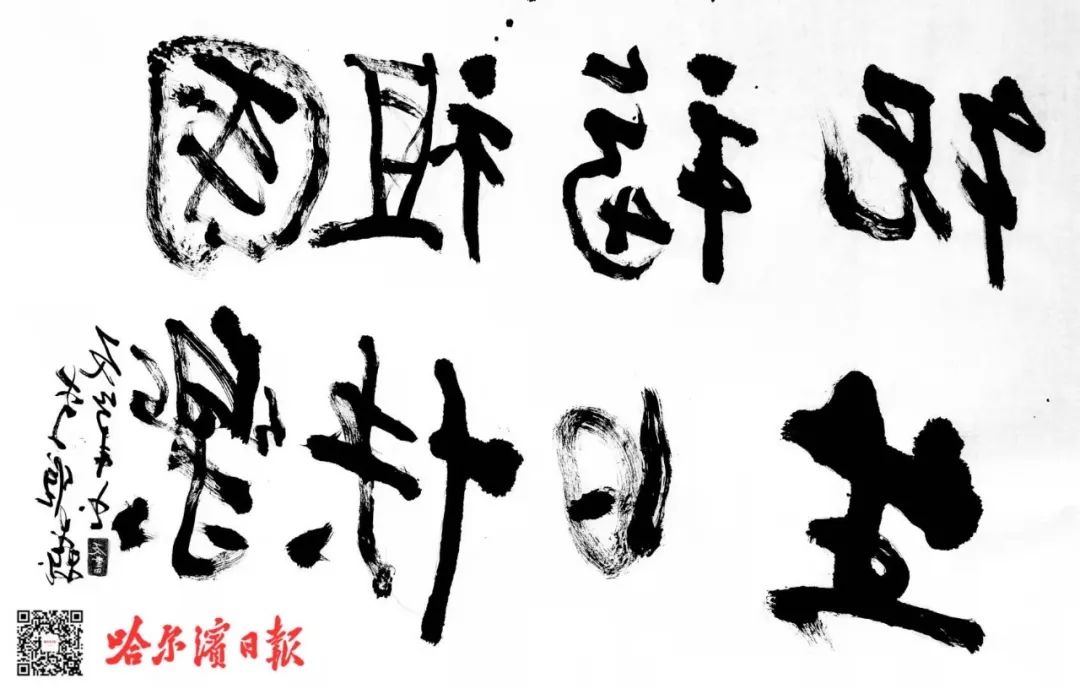 祝福祖国
生日快樂
哈尔濱日報